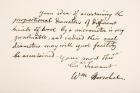 Your idea of ascertaining the
proportional diameters of different
kinds of wool by a micrometer is very
practicable, and indeed their real
diameters may with equal facility
be ascertained.
Your most obt
Servant
Wm Herschel.